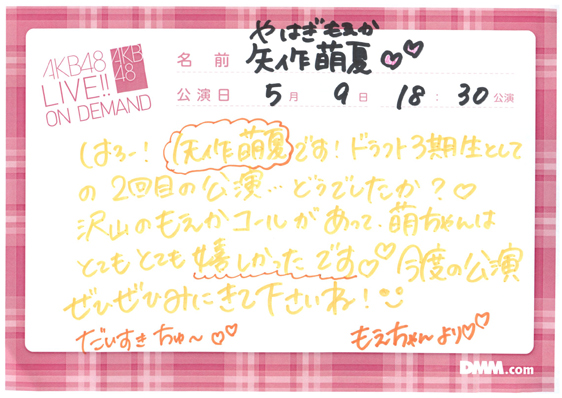 AKB48
LIVE!!
ON DEMAND
AKB
48
やはぎもえか
名前 矢作萌夏♡♡
公演日 5月 9日 18:30公演
はろー！矢作萌夏です！ドラフト3期生として
の2回目の公演…どうでしたか？♡
沢山のもえかコールがあって、萌ちゃんは
とてもとても嬉しかったです♡♡今度の公演
ぜひぜひみにきて下さいね！
だいすきちゅ〜♡♡
もえちゃんより♡♡
DMM.com